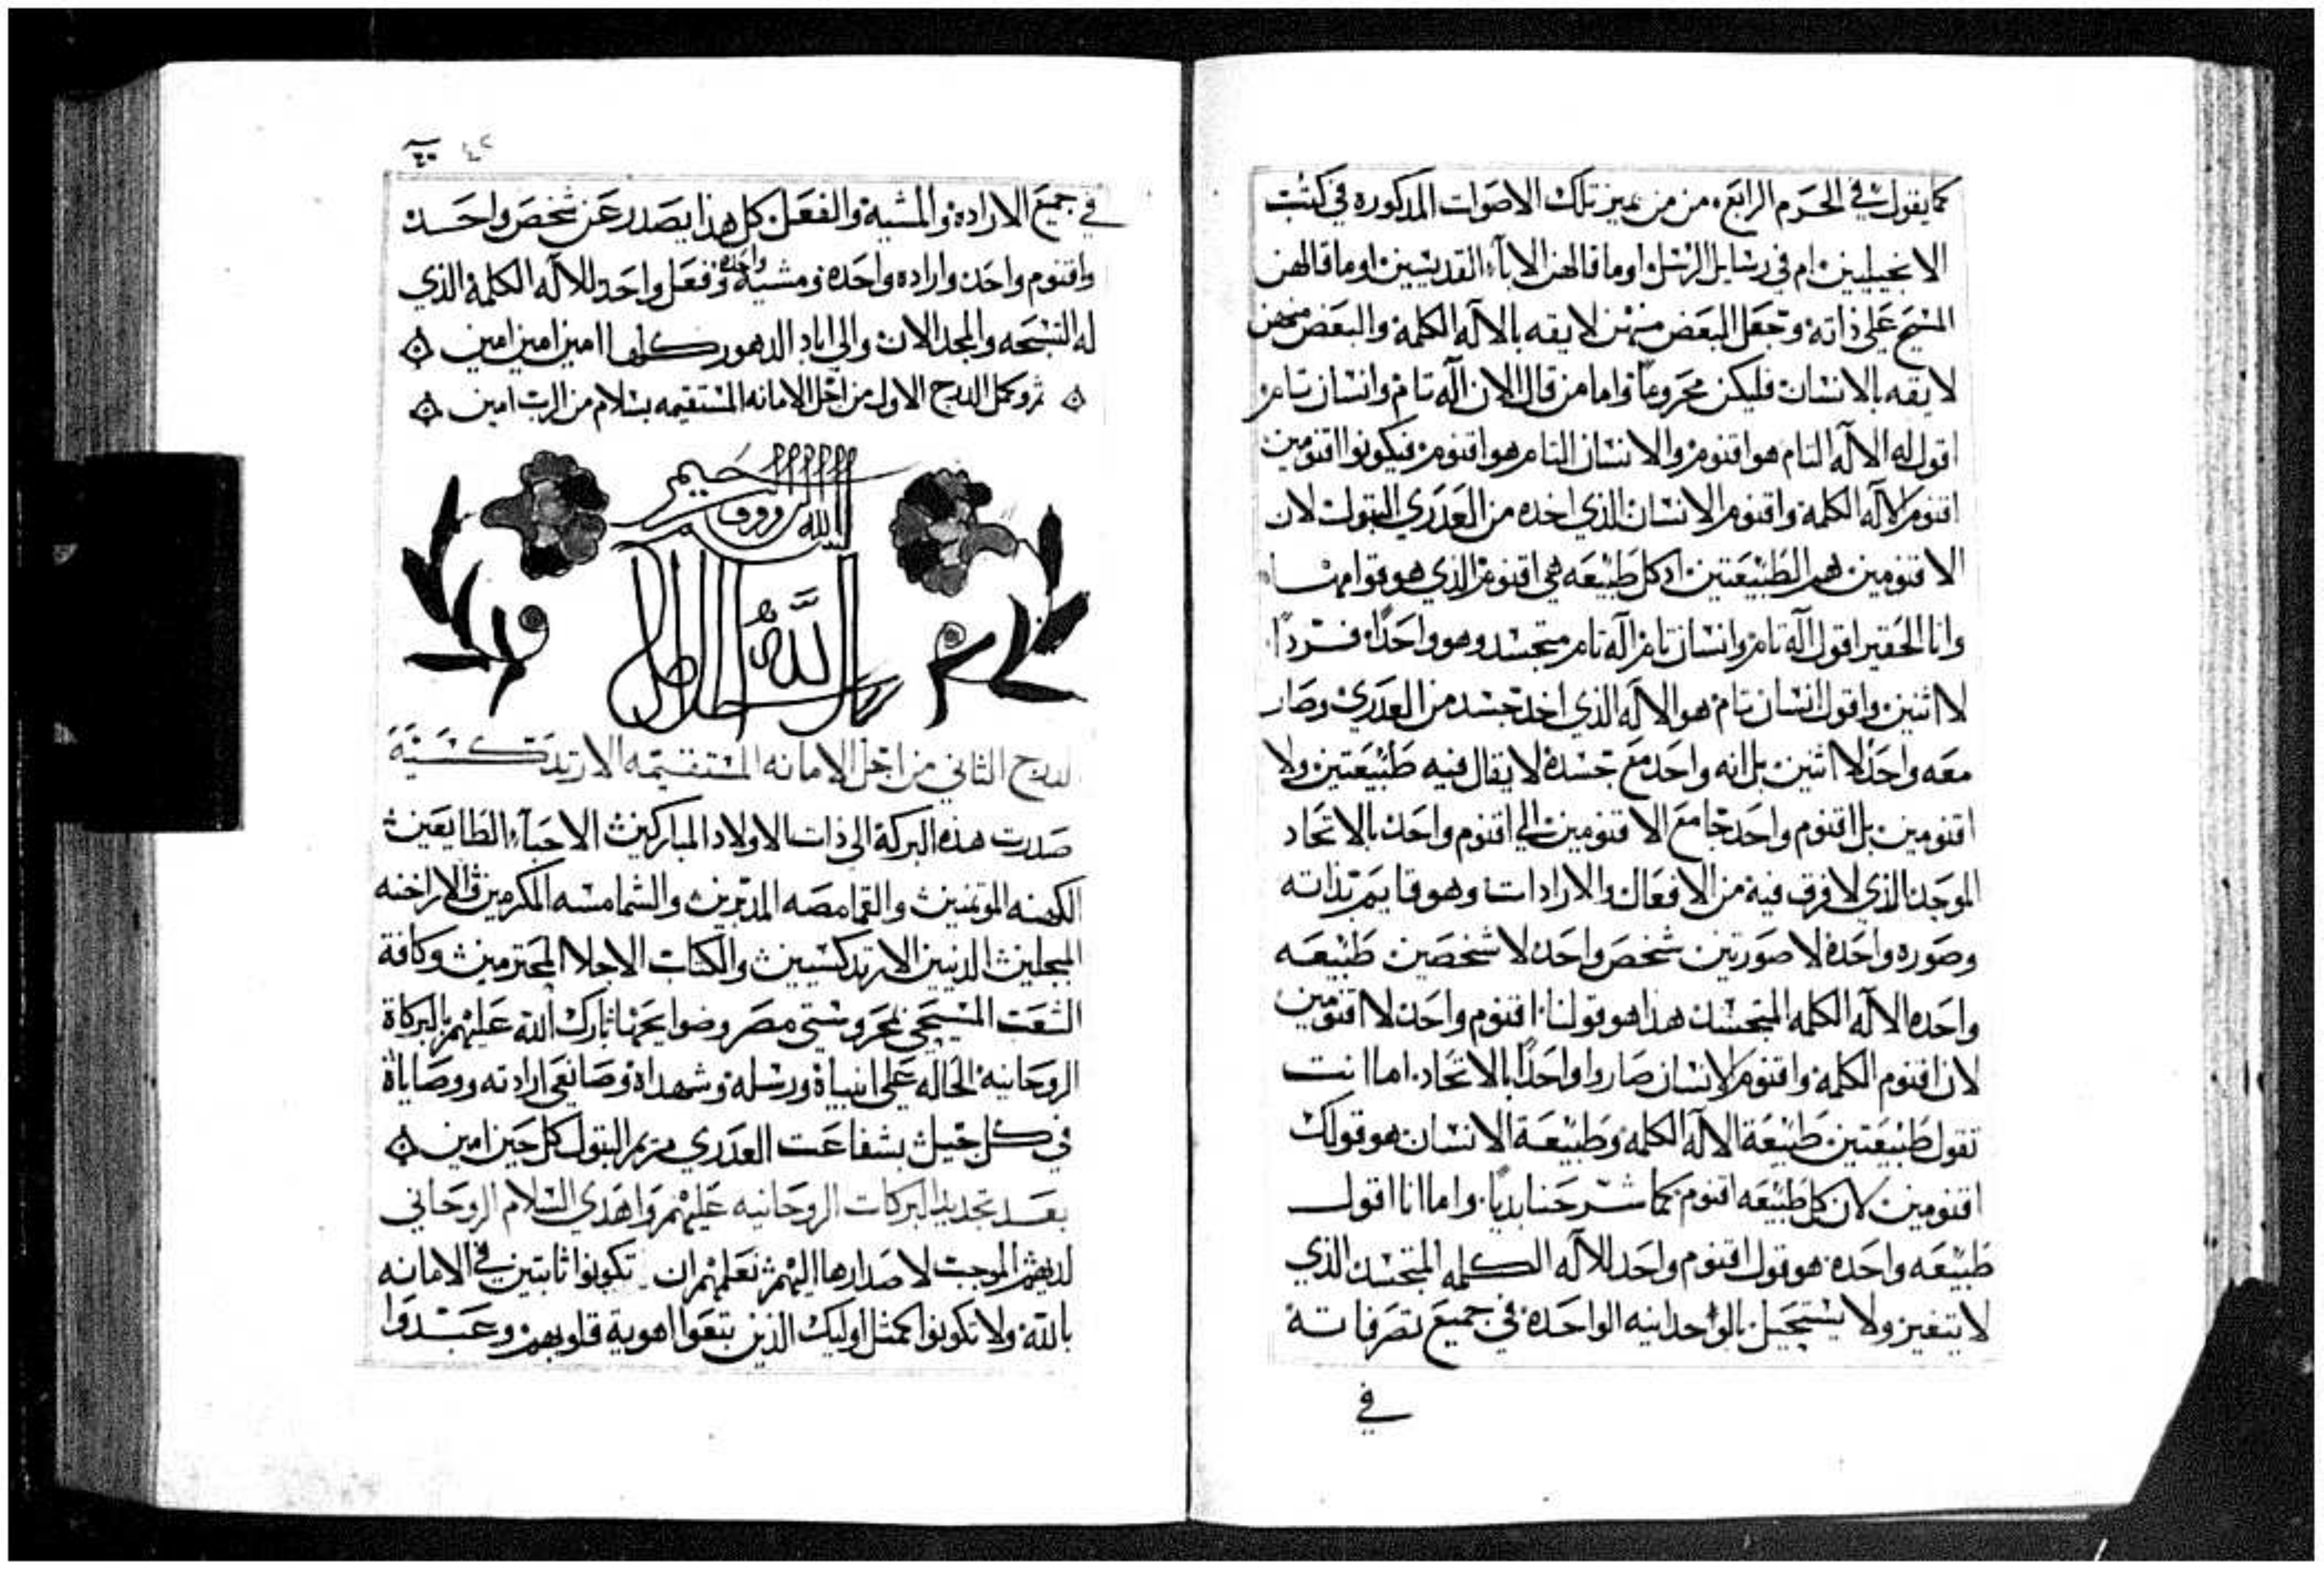 كما يقول في الحرم الرابع من من ميز تلك الاصوات المدكوره في كتب
الانجيليين ام في رسايل الرسل اوما قالهن الاباء القديسين اوما قالهن
المسيح على ذاته وتجعل البعض منهن لايقه بالاله الكلمة والبعض منهن
لايقه بالانسان فليكن محروما واما من قال الان اله تام وانسان تام
اقول له الاله التام هو اقنوم والانسان التام هو اقنوم فيكونوا اقنومين
اقنوم الاله الكلمة واقنوم الانسان الذي اخده من العدري البتول لان
الاقنومين هم الطبيعتين اد كل طبيعه هي اقنوم الذي هو قوامها
وانا الحقير اقول اله تام وانسان تام اله تام متجسد وهو واحدا فردا
لا اثنين واقول انسان تام هو الاله الذي اخد جسد من العدري وصار
معه واحد لا اثنين بل انه واحد مع جسده لا يقال فيه طبيعتين ولا
اقنومين بل اقنوم واحد جامع الاقنومين الى اقنوم واحد بالاتحاد
الموجدنا الذي لا فرق فيه من الافعال والارادات وهو قايم بذاته
وصوره واحده لا صورتين شخص واحد لا شخصين طبيعه
واحده الاله الكلمه المتجسد هذا هو قولنا اقنوم واحد لا اقنومين
لان اقنوم الكلمة واقنوم الانسان صاروا واحدا بالاتحاد اما انت
تقول طبيعتين طبيعة الاله الكلمة وطبيعة الانسان هو قولك
اقنومين لان كل طبيعه اقنوم كما شرحنا بديا واما انا اقول
طبيعه واحده هو قول اقنوم واحد للاله الكلمه المتجسد الذي
لا يتغير ولا يستحيل بالوحدانيه الواحده في جميع تصرفاته
في
٤٢
في جميع الاراده والمشيه والفعل كل هذا يصدر عن شخص واحد
واقنوم واحد واراده واحده ومشية واحده وفعل واحد للاله الكلمة الذي
له التسبحه والمجد الان والى اباد الدهور كلها امين امين امين
تم وكمل الدرج الاول من اجل الامانه المستقيمه بسلام من الرب امين
بسم الله الرووف الرحيم
الدرج الثاني من اجل الامانه المستقيمه الارتدكسية
صدرت هذه البركة الى ذات الاولاد المباركين الاحباء الطايعين
الكهنه الموتمنين والقمامصه المدبرين والشمامسه المكرمين والاراخنه
المبجلين الدينين الارتدكسيين والكتاب الاجلا المحترمين وكافة
الشعب المسيحي بمحروستي مصر وضواحيها تبارك الله عليهم بالبركاة
الروحانيه الحاله على انبياه ورسله وشهداه وصانعي ارادته ووصاياه
في كل جيل بشفاعت العدري مريم البتول كل حين امين
بعد تجديد البركات الروحانيه عليهم واهدي السلام الروحاني
لديهم الموجب لاصدارها اليهم نعلمهم ان تكونوا ثابتين في الامانه
بالله ولا تكونوا كمثل اوليك الذين تبعوا اهوية قلوبهم وعبدوا